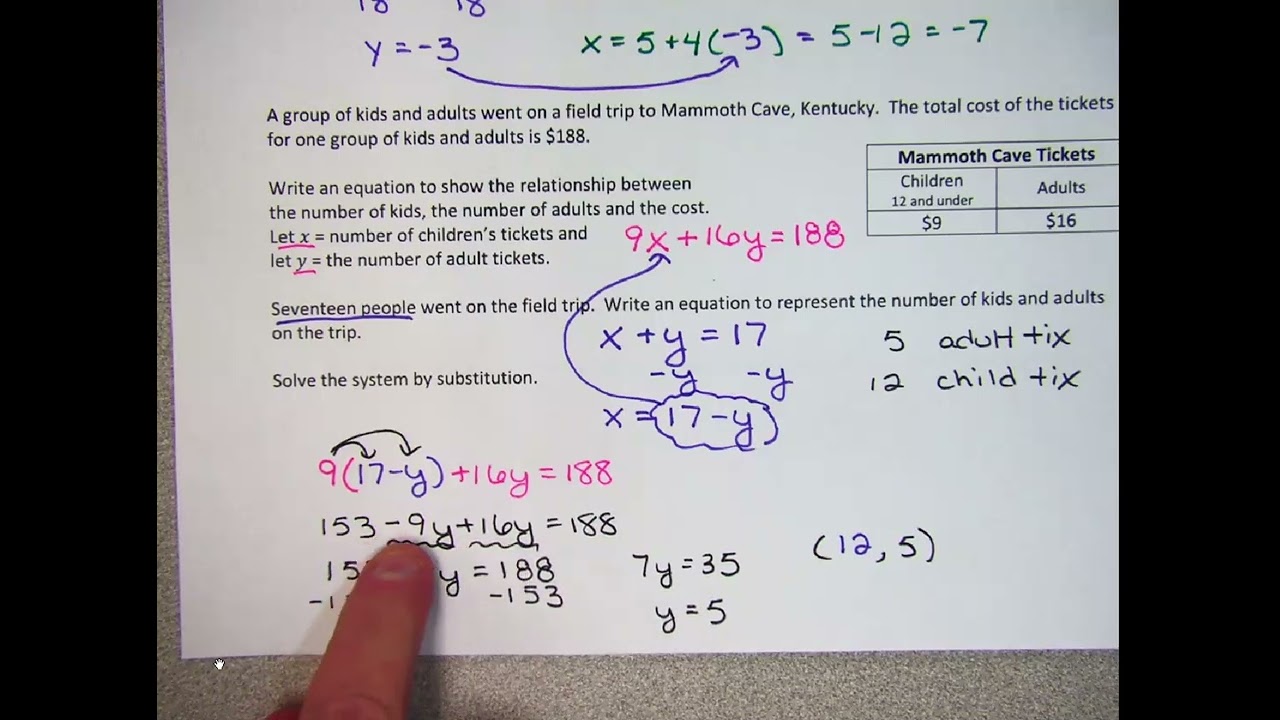 18 18
y = -3
x = 5+4(-3) = 5-12 = -7
A group of kids and adults went on a field trip to Mammoth Cave, Kentucky. The total cost of the tickets
for one group of kids and adults is $188.
Mammoth Cave Tickets
Children
12 and under
Adults
$9
$16
Write an equation to show the relationship between
the number of kids, the number of adults and the cost.
Let x = number of children's tickets and
let y = the number of adult tickets.
9x+16y=188
Seventeen people went on the field trip. Write an equation to represent the number of kids and adults
on the trip.
x + y = 17
-y -y
x = 17-y
5 adult tix
12 child tix
Solve the system by substitution.
9(17-y)+16y=188
153-9y+16y=188
15 y = 188
-1 -153
7y=35
y=5
(12,5)